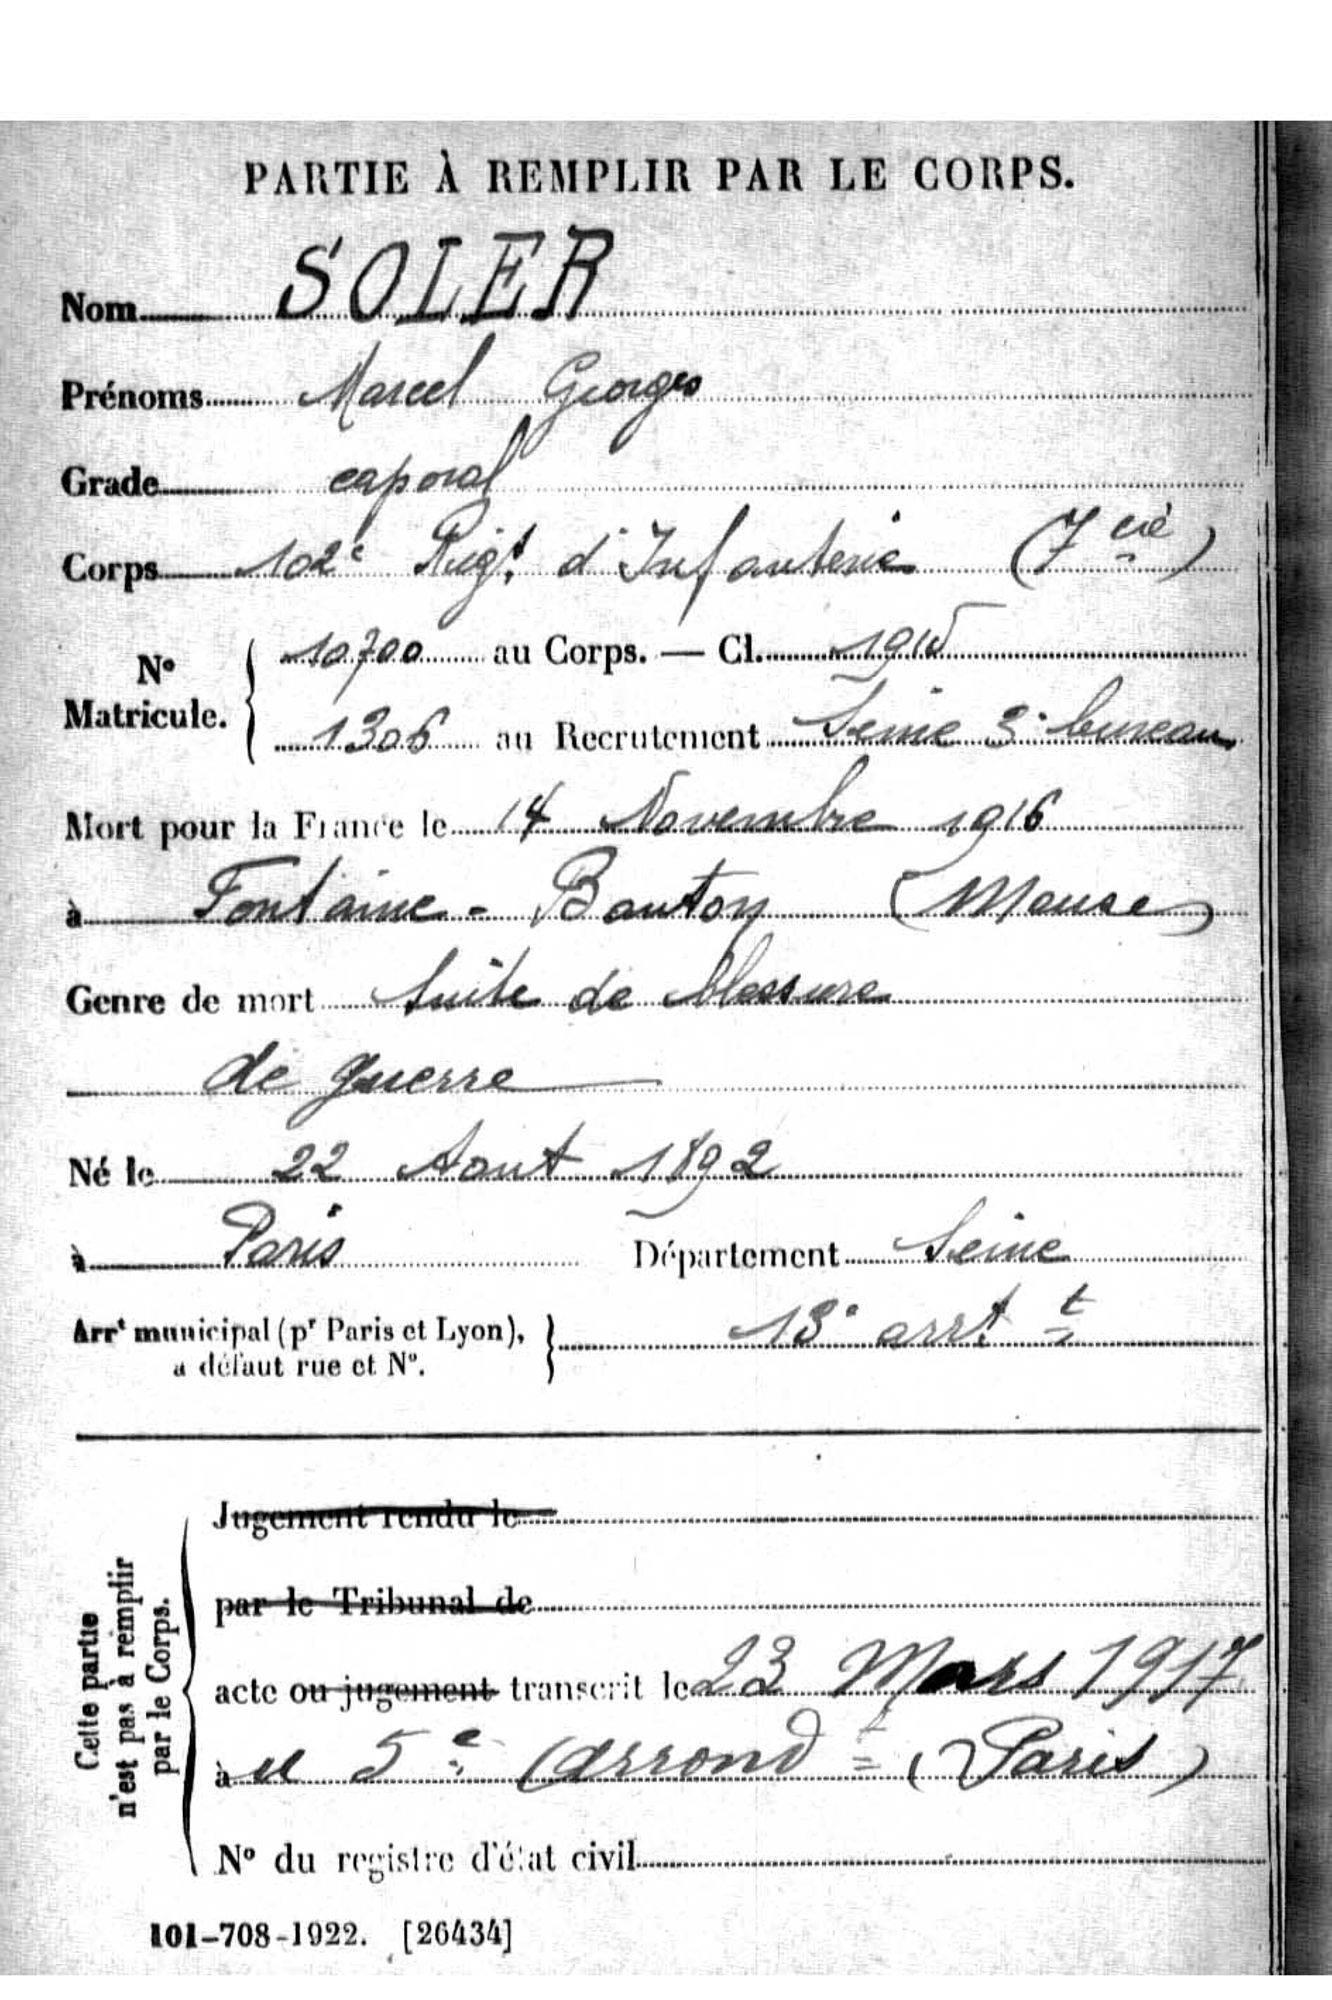 PARTIE À REMPLIR PAR LE CORPS.
Nom SOLER
Prénoms Marcel Georges
Grade caporal
Corps 102e Régt. d'Infanterie (7 cie)
No Matricule. 10700 au Corps. — Cl. 1915
1306 au Recrutement Seine 3e bureau
Mort pour la France le 14 Novembre 1916
à Fontaine - Bouton (Meuse)
Genre de mort Suite de blessures
de guerre
Né le 22 Aout 1892
à Paris Département Seine
Arrt municipal (pr Paris et Lyon), 13e arrt. t
a défaut rue et No.
Cette partie
n'est pas à remplir
par le Corps.
Jugement rendu le
par le Tribunal de
acte ou jugement transcrit le 23 Mars 1917
à u 5e Arrondt (Paris)
No du registre d'état civil
101-708-1922. [26434]